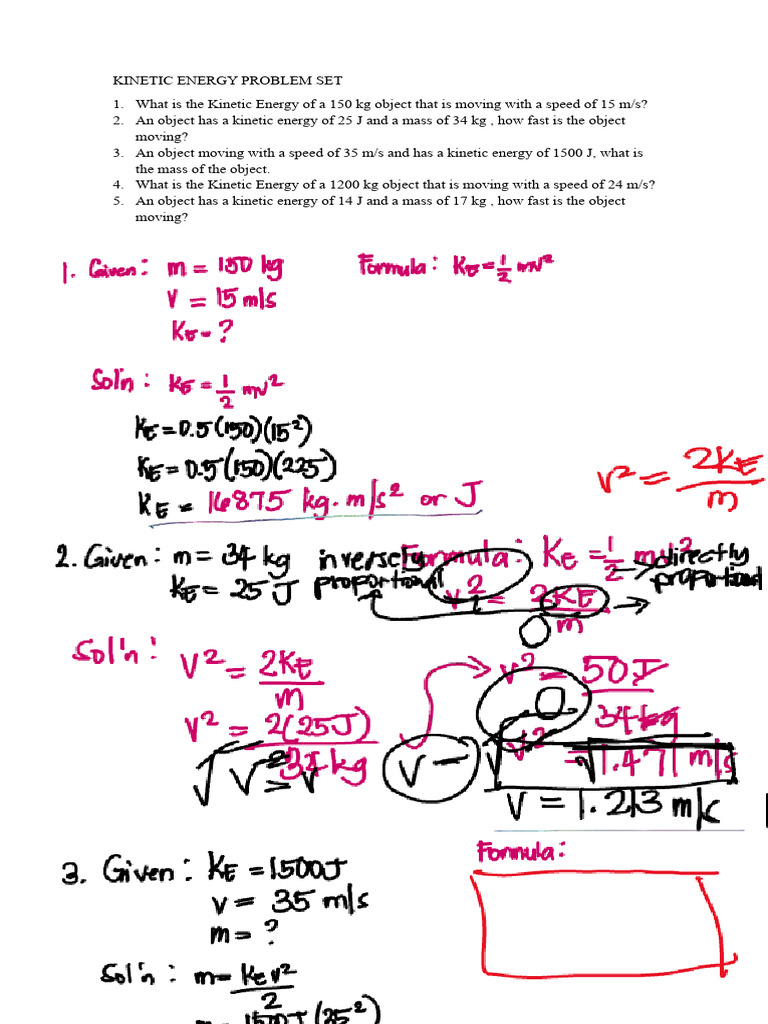 KINETIC ENERGY PROBLEM SET
1. What is the Kinetic Energy of a 150 kg object that is moving with a speed of 15 m/s?
2. An object has a kinetic energy of 25 J and a mass of 34 kg , how fast is the object
moving?
3. An object moving with a speed of 35 m/s and has a kinetic energy of 1500 J, what is
the mass of the object.
4. What is the Kinetic Energy of a 1200 kg object that is moving with a speed of 24 m/s?
5. An object has a kinetic energy of 14 J and a mass of 17 kg , how fast is the object
moving?
1. Given: m = 150 kg
v = 15 m/s
KE = ?
Formula: KE = 1/2 mv²
Sol'n: KE = 1/2 mv²
KE = 0.5(150)(15²)
KE = 0.5(150)(225)
KE = 16875 kg.m/s² or J
v² = 2KE/m
2. Given: m = 34 kg
KE = 25 J
inversely
proportional
Formula: KE = 1/2 mv²
v² = 2KE/m
directly
proportional
Sol'n: v² = 2KE/m
v² = 2(25J)/34 kg
v² = 50J/34kg
v² = √1.471 m/s
v = √
√v² = v
v = 1.213 m/s
3. Given: KE = 1500J
v = 35 m/s
m = ?
Formula:
Sol'n: m = KE v²/2
m = 1500J (35²)